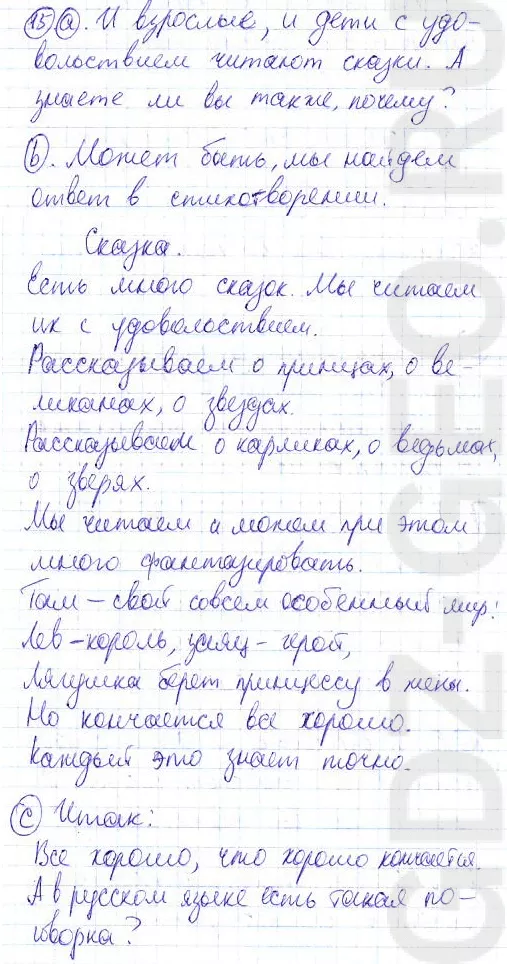 15 a. И взрослые, и дети с удо-
вольствием читают сказки. А
знаете ли вы также, почему?
b. Может быть, мы найдем
ответ в стихотворении.
Сказка.
Есть много сказок. Мы читаем
их с удовольствием.
Рассказываем о принцах, о ве-
ликанах, о звездах.
Рассказываем о карликах, о ведьмах,
о зверях.
Мы читаем и можем при этом
много фантазировать.
Там – свой совсем особенный мир!
Лев – король, заяц – герой,
Лягушка берет принцессу в жены.
Но кончается все хорошо.
Каждый это знает точно.
c Итак:
Все хорошо, что хорошо кончается.
А в русском языке есть такая по-
говорка?
GDZ-GEO.RU